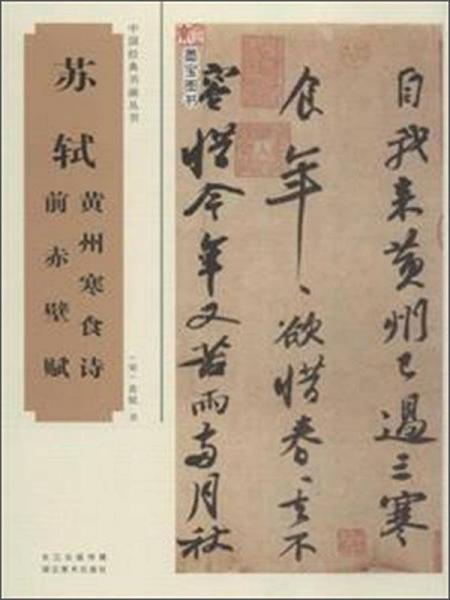 中国经典书画丛书
苏轼
黄州寒食诗
前赤壁赋
（宋）苏轼 书
长江出版传媒
湖北美术出版社
墨宝图书
自我来黄州已過三寒
食年〻欲惜春〻去不
容惜今年又苦雨两月秋